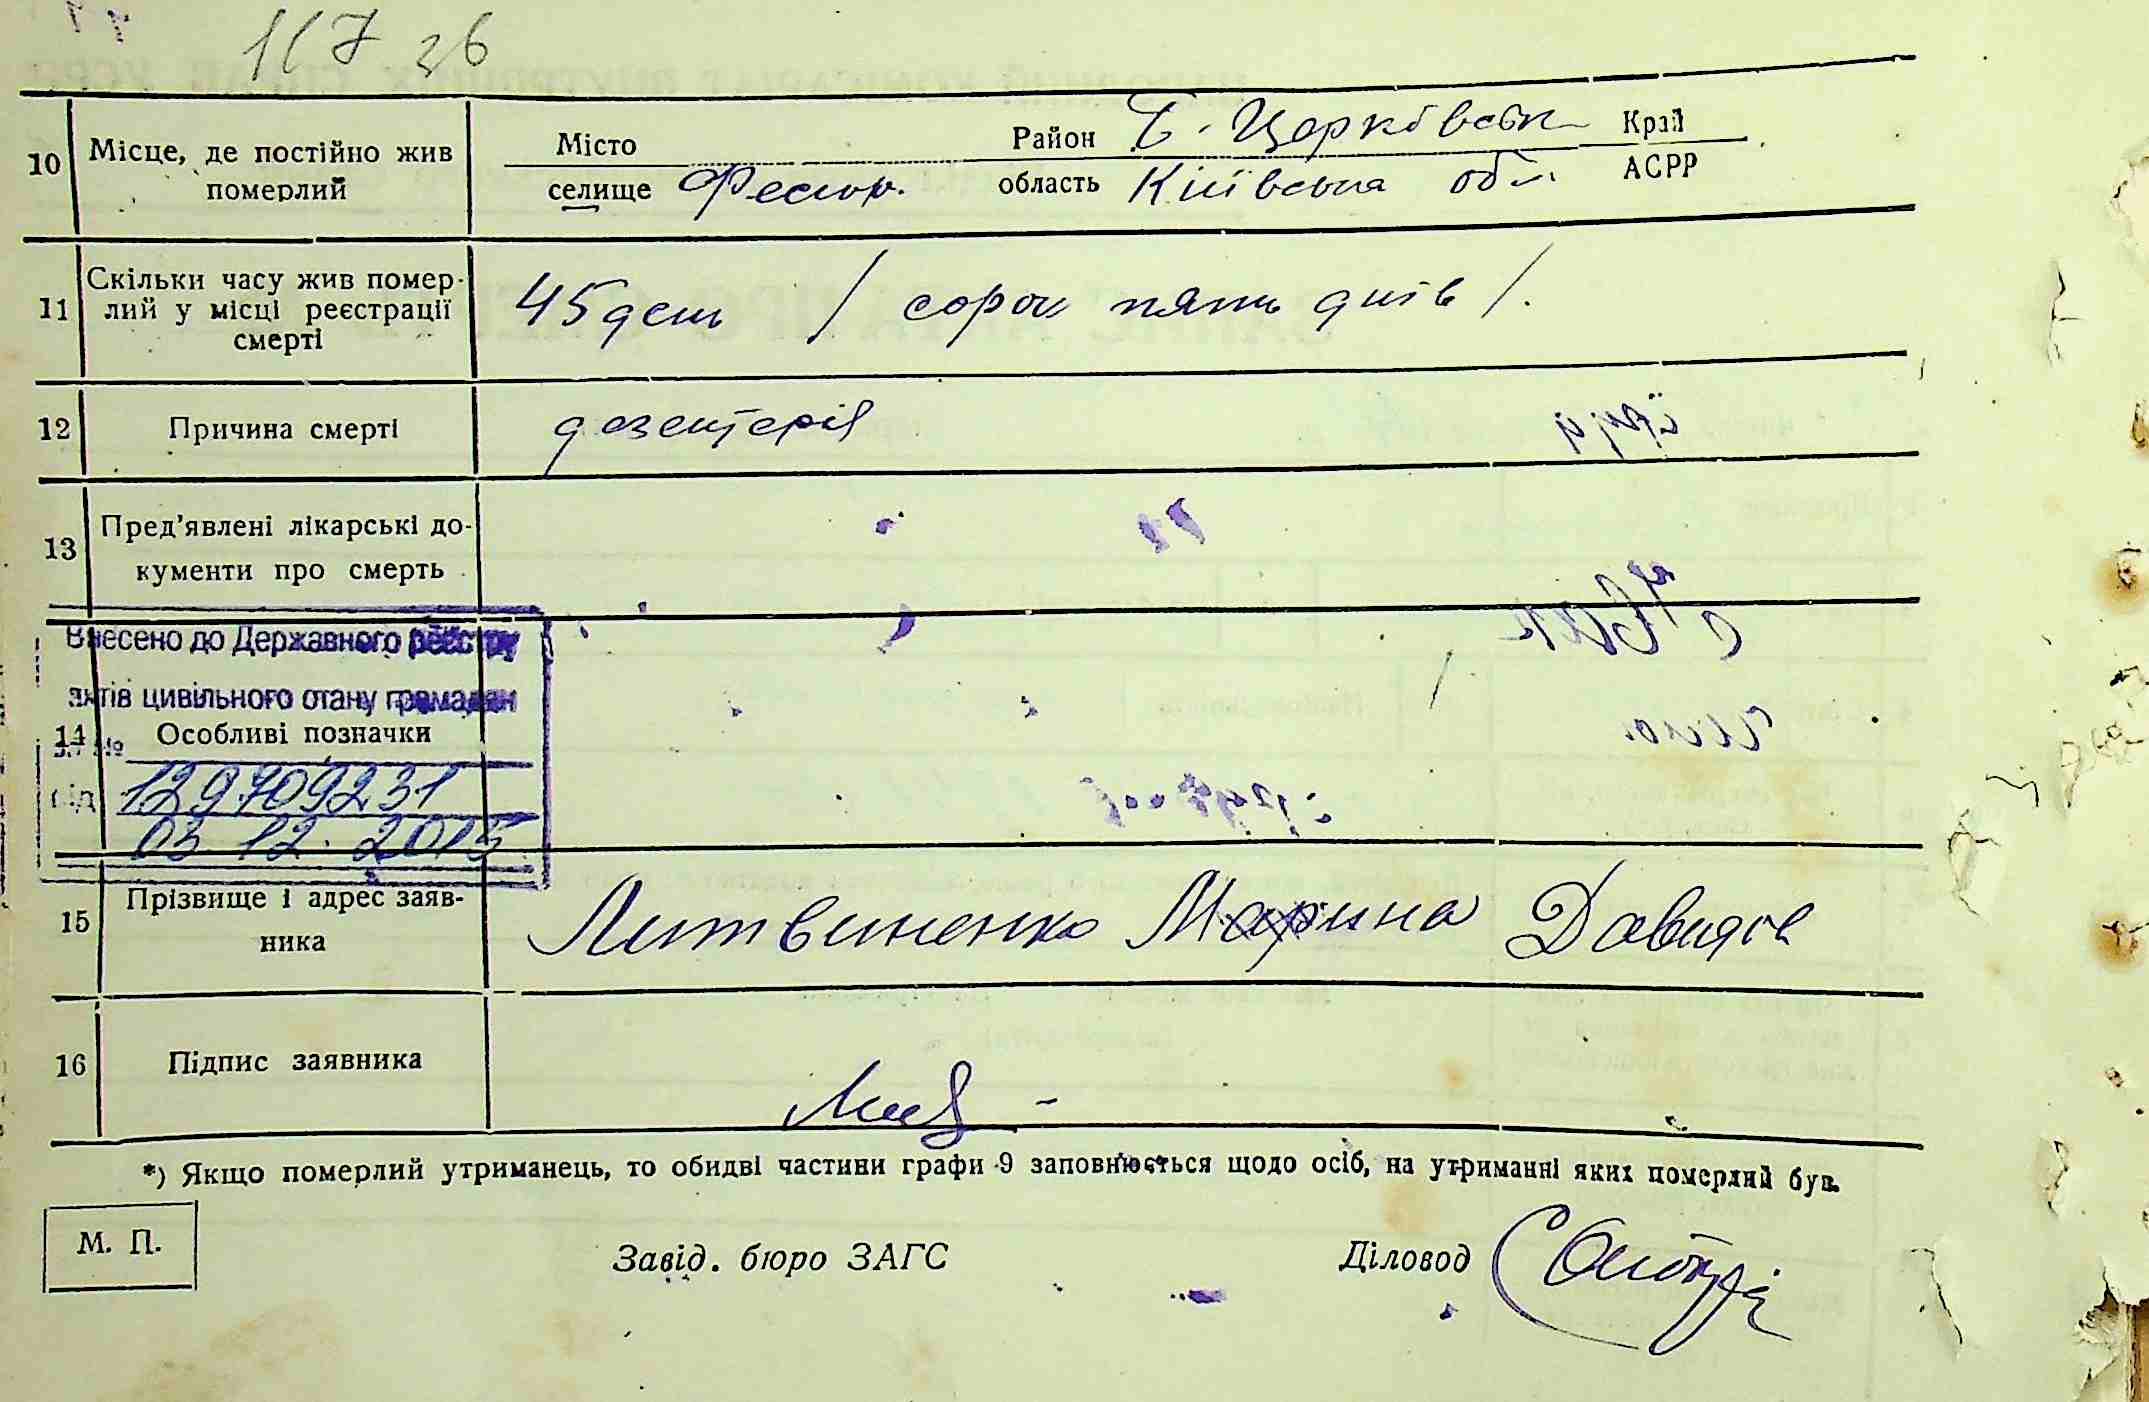 117 зв
10 Місце, де постійно жив померлий
Місто
селище Фесюр.
Район Б. Церківськ
область Київська обл.
Край
АСРР
11 Скільки часу жив помер-
лий у місці реєстрації
смерті
45 день / сорок пять днів /.
12 Причина смерті дезентерія
13 Пред’явлені лікарські до-
кументи про смерть
Внесено до Державного реєстру
актів цивільного стану громадян
14 Особливі позначки
за №
129709231
від 03 12. 2015
15 Прізвище і адрес заяв-
ника
Литвиненко Марина Давидов
16 Підпис заявника
*) Якщо померлий утриманець, то обидві частини графи 9 заповнюється щодо осіб, на утриманні яких померлий був.
М. П.
Завід. бюро ЗАГС
Діловод